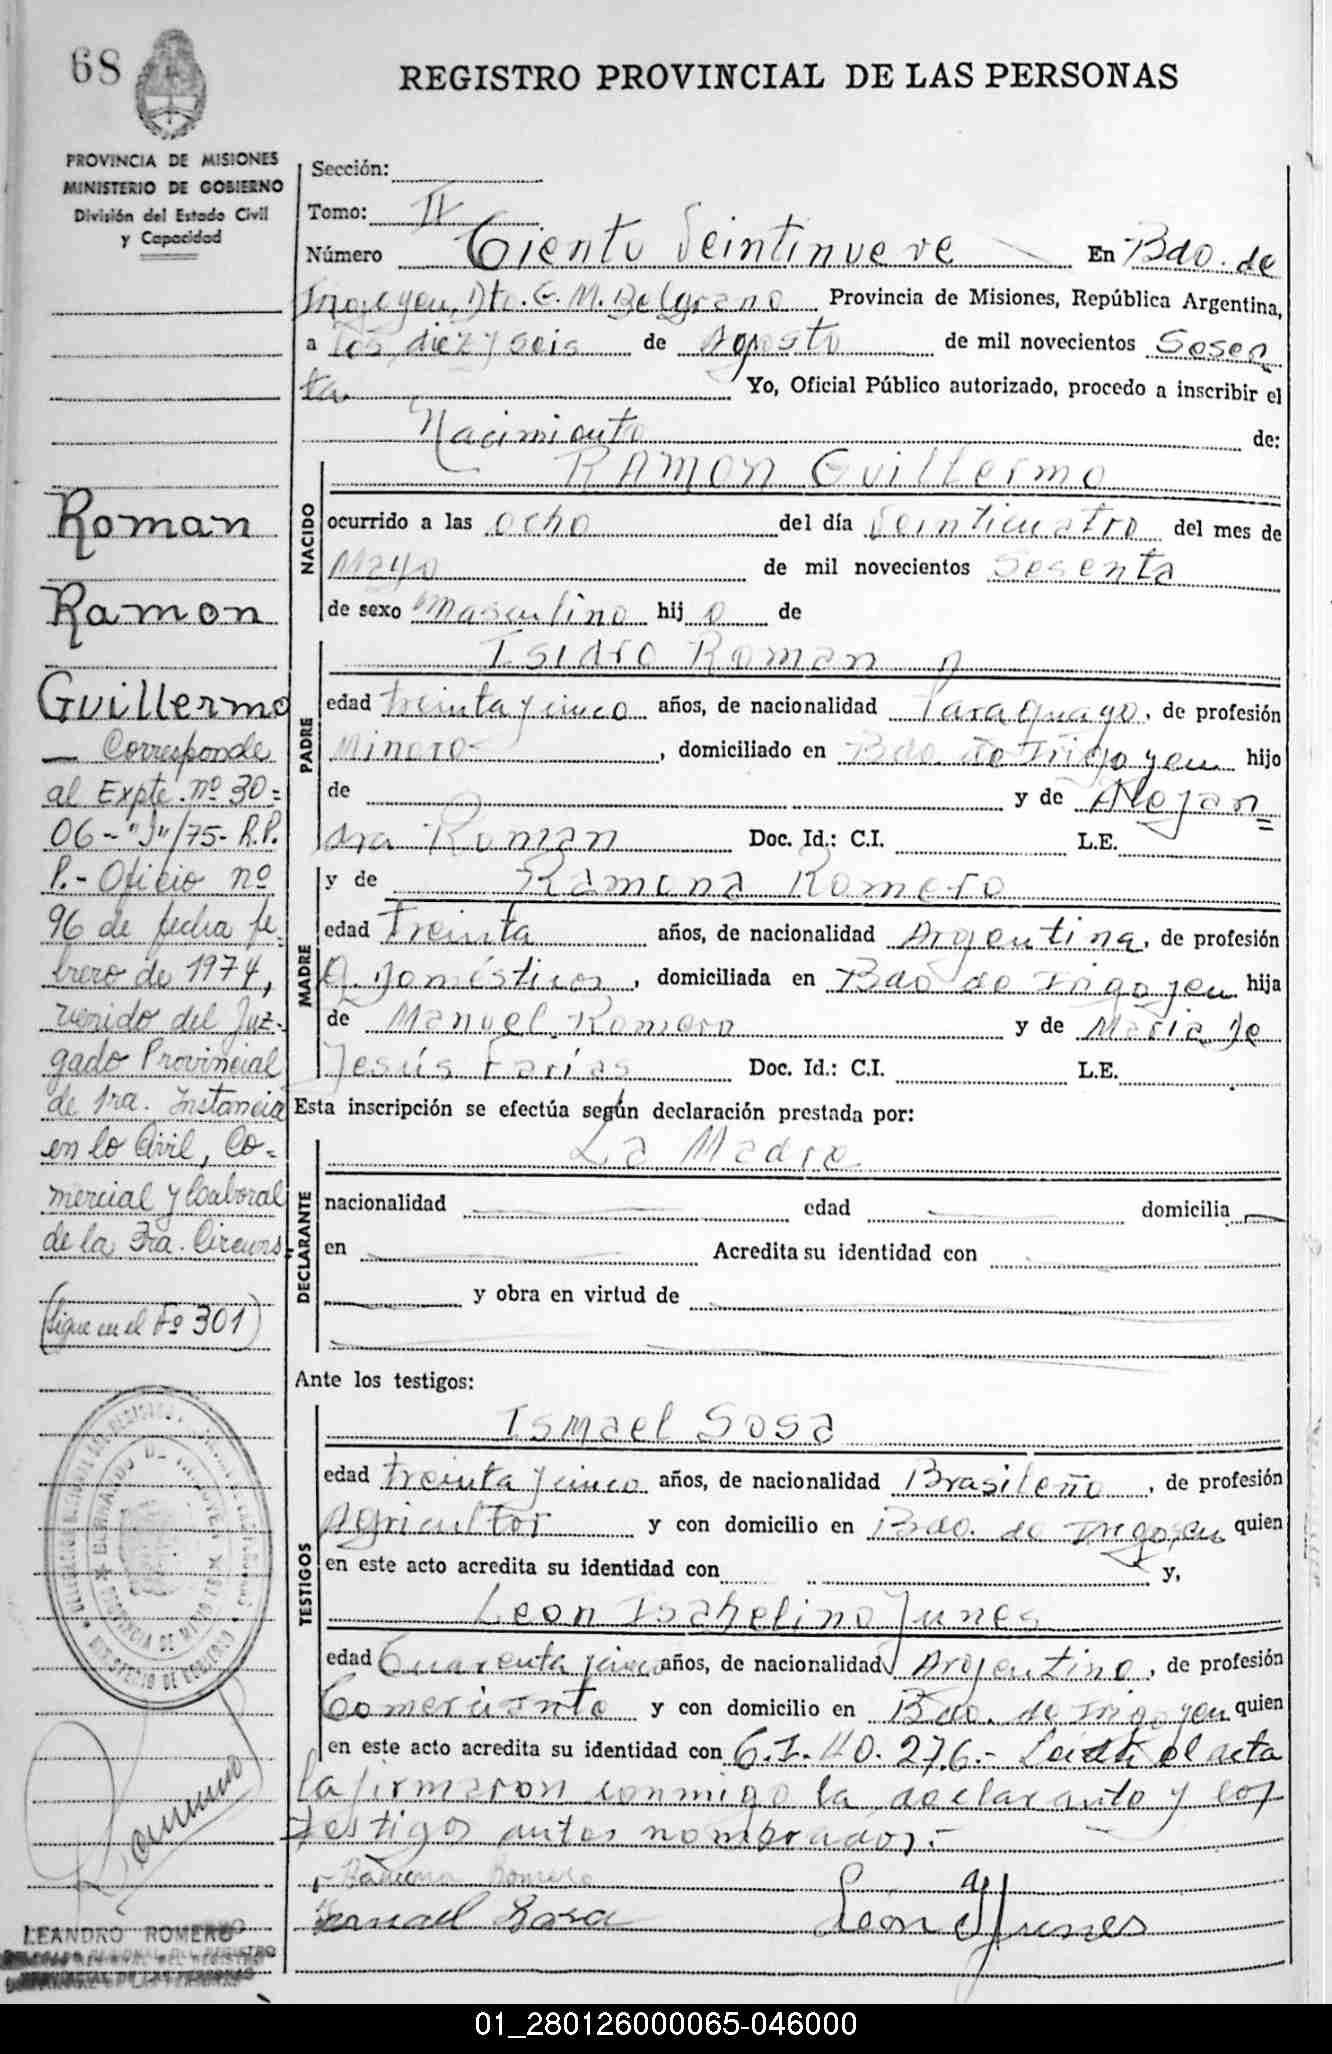 68
REGISTRO PROVINCIAL DE LAS PERSONAS
PROVINCIA DE MISIONES
MINISTERIO DE GOBIERNO
División del Estado Civil
y Capacidad
Sección:
Tomo: II
Número Ciento Veintinueve En Bdo. de
Irigoyen, Dto. G. M. Belgrano Provincia de Misiones, República Argentina,
a los diez y seis de Agosto de mil novecientos Sesen
ta Yo, Oficial Público autorizado, procedo a inscribir el
Nacimiento de:
RAMON Guillermo
NACIDO
ocurrido a las ocho del día Veinticuatro del mes de
Mayo de mil novecientos Sesenta
de sexo Masculino hij o de
Isidro Roman
PADRE
edad treinta y cinco años, de nacionalidad Paraguayo, de profesión
Minero , domiciliado en Bdo de Irigoyen hijo
de y de Alejan=
dra Roman Doc. Id.: C.I. L.E.
y de Ramona Romero
MADRE
edad Treinta años, de nacionalidad Argentina, de profesión
Q. Domésticos, domiciliada en Bdo de Irigoyen hija
de Manuel Romero y de Maria de
Jesús Farias Doc. Id.: C.I. L.E.
Esta inscripción se efectúa según declaración prestada por:
La Madre
DECLARANTE
nacionalidad edad domicilia
en Acredita su identidad con
y obra en virtud de
Ante los testigos:
Ismael Sosa
TESTIGOS
edad treinta y cinco años, de nacionalidad Brasileño, de profesión
Agricultor y con domicilio en Bdo. de Irigoyen quien
en este acto acredita su identidad con y,
Leon Isabelino Junes
edad Cuarenta y cinco años, de nacionalidad Argentino, de profesión
Comerciante y con domicilio en Bdo. de Irigoyen quien
en este acto acredita su identidad con C.I. 40.276.- Leida el acta
la firmaron conmigo la declarante y los
testigos antes nombrados.-
Ramona Romero
Ismael Sosa
Leon Y Junes
Roman
Ramon
Guillermo
— Corresponde
al Expte. nº 30=
06-"J"/75- R.P.
P.- Oficio nº
96 de fecha fe-
brero de 1974,
venido del Juz-
gado Provincial
de 1ra. Instancia
en lo Civil, Co=
mercial y Laboral
de la 3ra. Circuns
(sigue en el Fº 301)
BERNARDO DE IRIGOYEN
PROVINCIA DE MISIONES
MINISTERIO DE GOBIERNO
LEANDRO ROMERO
01_280126000065-046000